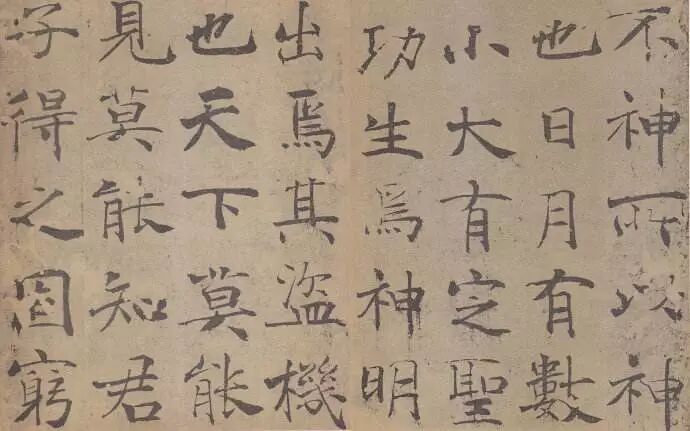 不神所以神
也日月有數
小大有定聖
功生焉神明
出焉其盜機
也天下莫能
見莫能知君
子得之固窮